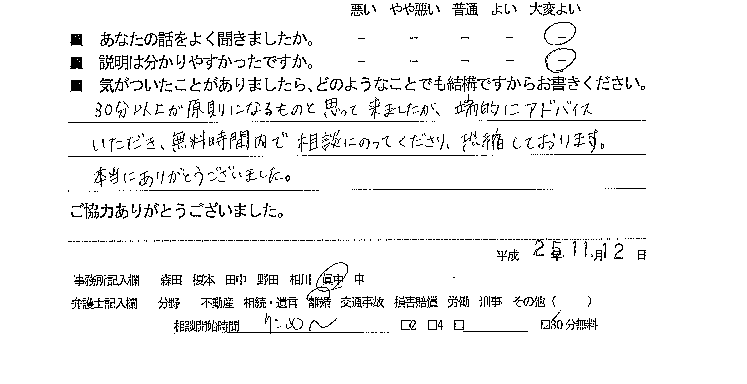 悪い やや悪い 普通 よい 大変よい
■ あなたの話をよく聞きましたか。 － － － － －
■ 説明は分かりやすかったですか。 － － － － －
■ 気がついたことがありましたら、どのようなことでも結構ですからお書きください。
30分以上が原則になるものと思って来ましたが、端的にアドバイス
いただき、無料時間内で相談にのってくださり、恐縮しております。
本当にありがとうございました。
ご協力ありがとうございました。
平成 25年 11月 12日
事務所記入欄 森田 榎本 田中 野田 相川 眞中 中
弁護士記入欄 分野 不動産 相続・遺言 離婚 交通事故 損害賠償 労働 刑事 その他（ ）
相談開始時間 7:00～ □2 □4 □ ☑30分無料